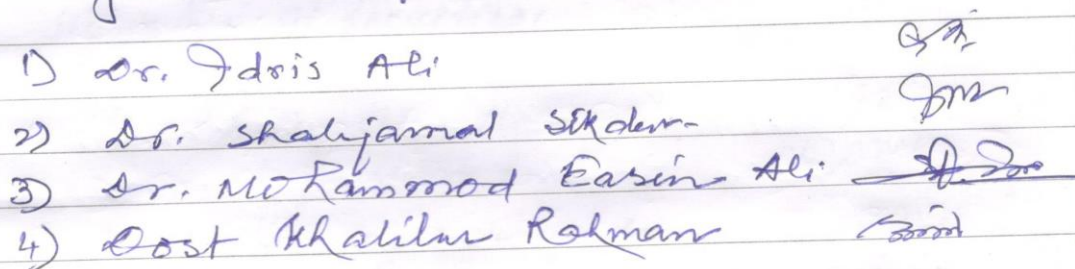 1) Dr. Idris Ali
2) Dr. Shahjamal Sikder
3) Dr. Mohammod Easin Ali
4) Dost Khalilur Rahman